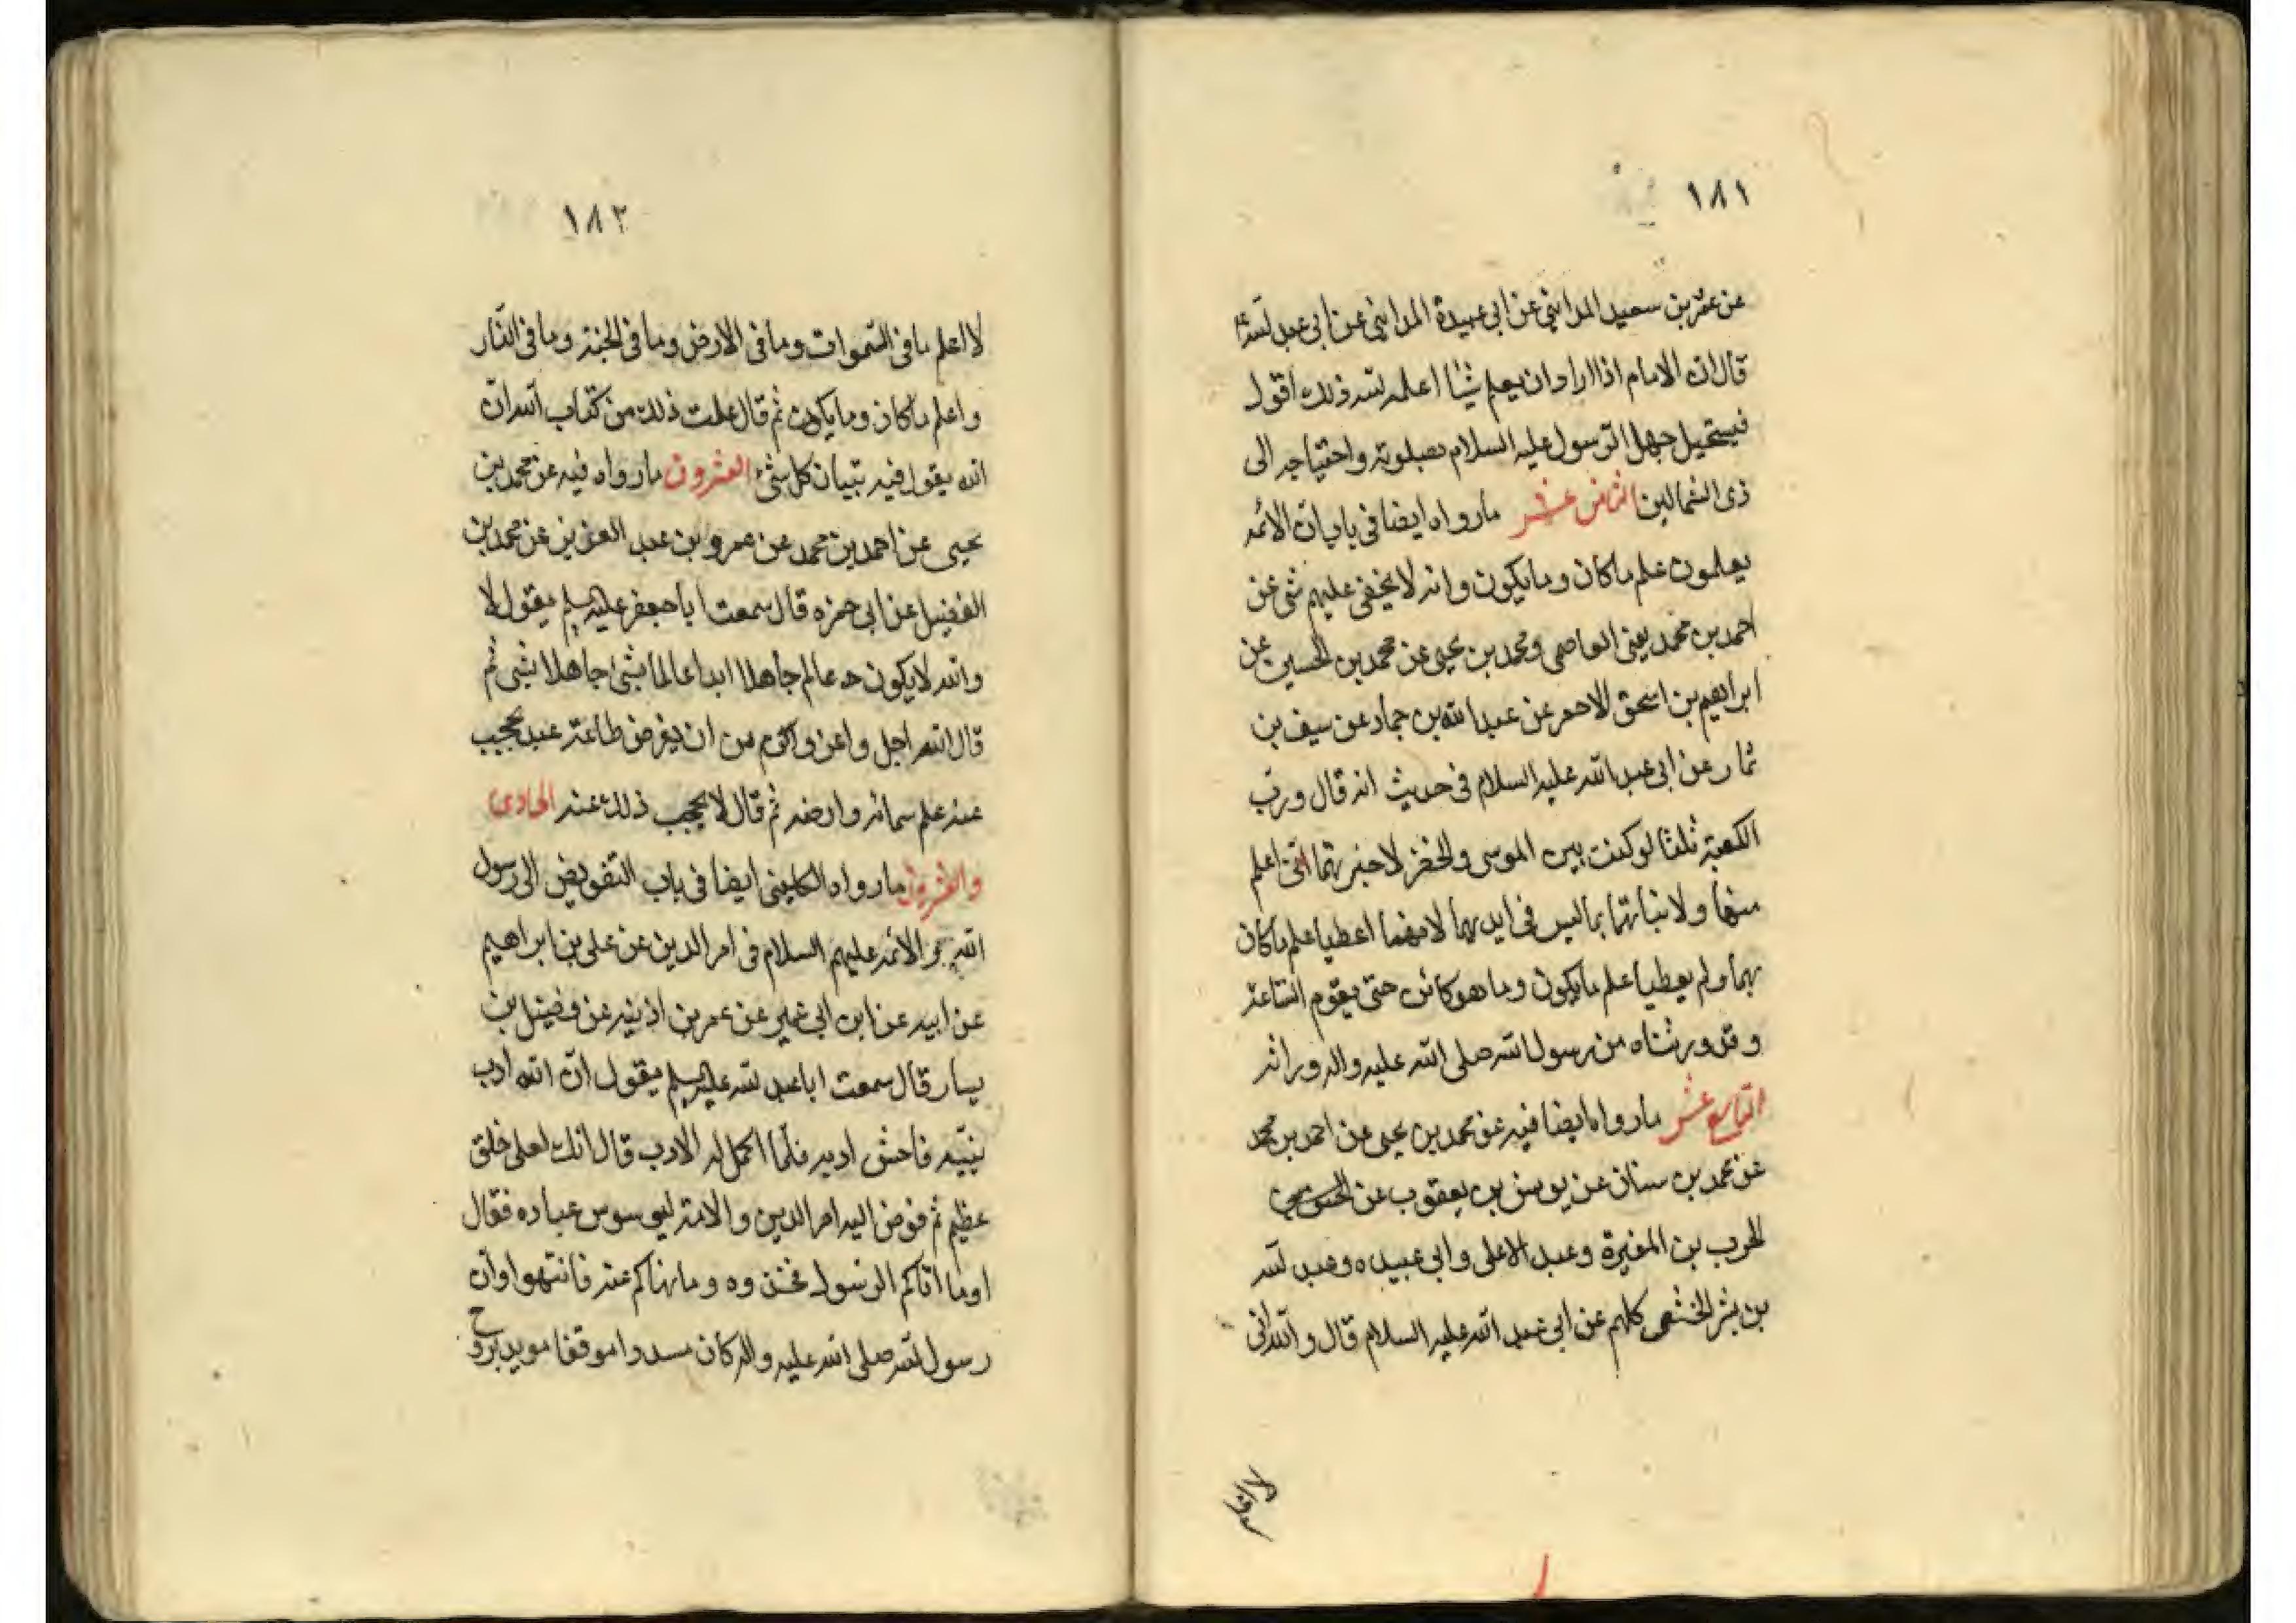 ١٨١
عن عمرو بن سعيد المدايني عن ابي عبيدة المدايني عن ابي عبد الله ع
قال ان الامام اذا اراد ان يعلم شيئا اعلمه الله ذلك اقول
فيستحيل جهل الرسول عليه السلام بصلوته واحتياجه الى
ذى الشمالين الثامن عشر ما رواه ايضا فى باب ان الائمه
يعلمون علم ما كان وما يكون وانه لا يخفى عليهم شئ عن
احمد بن محمد يعنى العاصمي ومحمد بن يحيى عن محمد بن الحسين عن
ابراهيم بن اسحق الاحمر عن عبد الله بن حماد عن سيف بن
تمار عن ابى عبد الله عليه السلام فى حديث انه قال ورب
الكعبة ثلثا لو كنت بين الموسى والخضر لاخبرتهما انى اعلم
منهما ولانبائتهما بما ليس فى ايديهما لانهما اعطيا علم ما كان
بهما ولم يعطيا علم ما يكون وما هو كائن حتى يقوم الساعة
وقد ورثناه من رسول الله صلى الله عليه واله وراثه
التاسع عشر ما رواه ايضا فيه عن محمد بن يحيى عن احمد بن محمد
عن محمد بن سنان عن يونس بن يعقوب عن
الحرب بن المغيرة وعبد الاعلى وابى عبيده وعبد الله
بن بشر الخثعمى كلهم عن ابى عبد الله عليه السلام قال والله انى
١٨٢
لا اعلم ما فى السموات وما فى الارض وما فى الجنة وما فى النار
واعلم ما كان وما يكون ثم قال علمت ذلك من كتاب الله ان
الله يقول فيه تبيان كل شئ العشرون ما رواه فيه عن محمد بن
يحيى عن احمد بن محمد عن عمرو بن عبد العزيز عن محمد بن
الفضيل عن ابى حمزه قال سمعت ابا جعفر عليه السلم يقول لا
والله لا يكون عالم جاهلا ابدا عالما بشئ جاهلا بشى ثم
قال الله اجل واعز واكرم من ان يفرض طاعة عبد يحجب
عنه علم سمائه وارضه ثم قال لا يحجب ذلك عنه الحادى
والعشرون ما رواه الكلينى ايضا فى باب التفويض الى رسول
الله والائمه عليهم السلام فى امر الدين عن على بن ابراهيم
عن ابيه عن ابن ابى عمير عن عمر بن اذينه عن فضيل بن
يسار قال سمعت ابا عبد الله عليه السلم يقول ان الله ادب
نبيّه فاحسن ادبه فلما اكمل له الادب قال انك لعلى خلق
عظيم ثم فوض اليه امر الدين والامة ليسوس عباده فقال
او ما اتاكم الرسول فخذوه وما نهاكم عنه فانتهوا وان
رسول الله صلى الله عليه واله كان مسددا موفقا مويد بروح